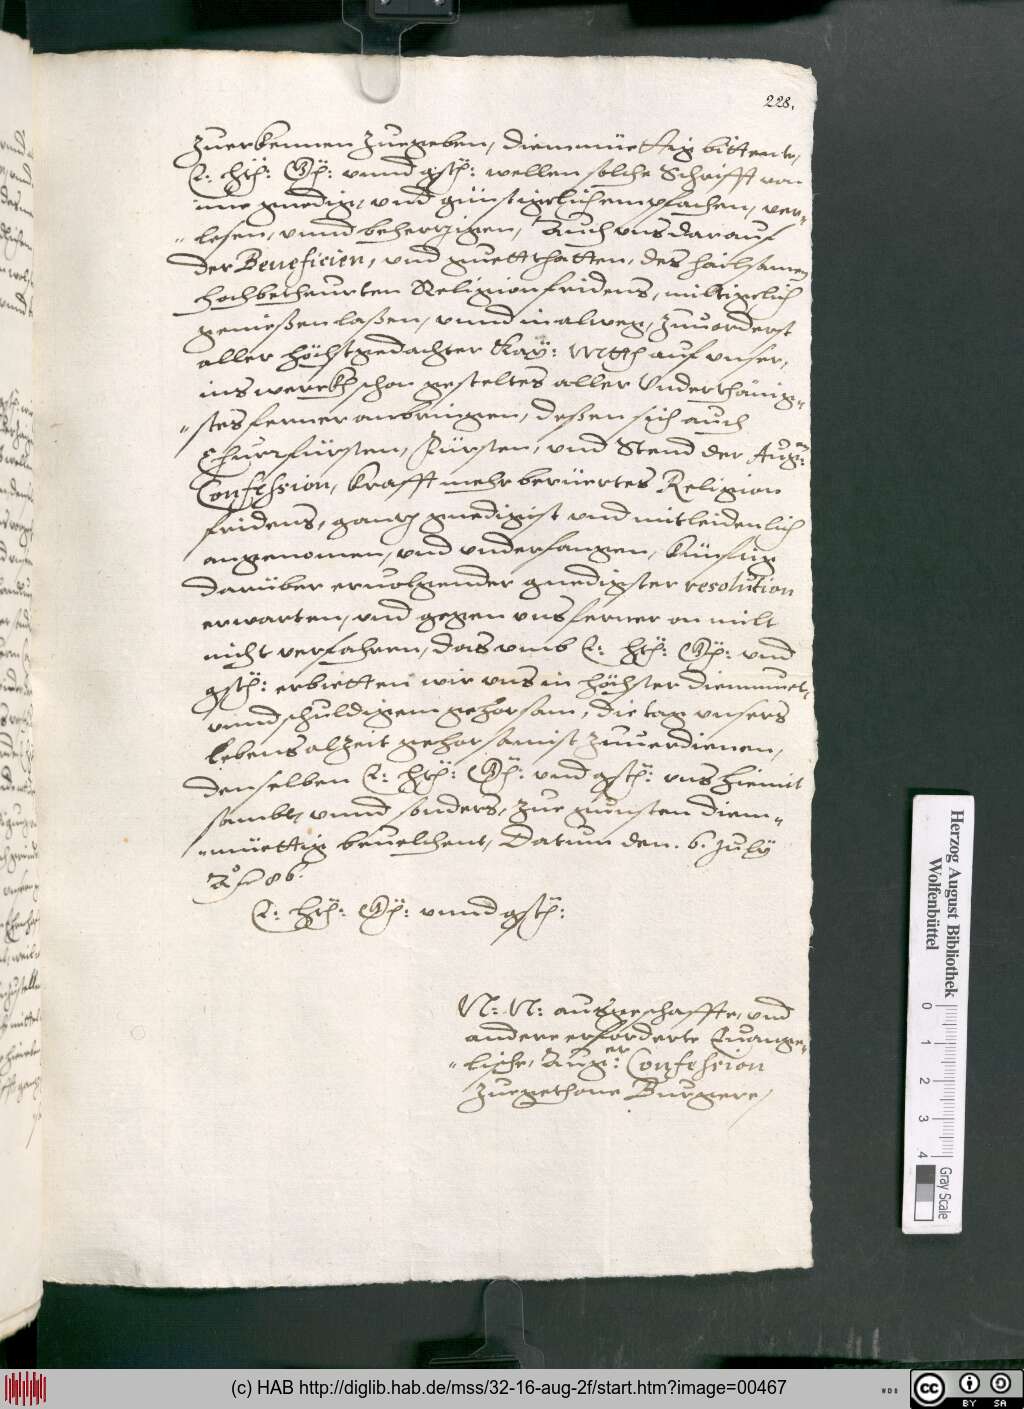 228.
zuerkennen zuegeben, diemmüettig bittente,
E: hrh: Gh: vnnd gsth: wellen solche Schrifft von
vnns gnedig, vnd günstigclich empfachen, ver-
-lesen, vnnd beherzigen, Auch vns darauf
der Beneficien, vnd guettthatten, des hailsamen
hochbetheurten Religionfridens, miltigclich
genießen laßen, vnnd in alweg, zuuorderst
aller höchstgedachter Kay: Mtth auf vnser,
ins werckh schon gesteltes aller Underthänig-
-stes ferner anbringen, deßen sich auch
Churrfürsten, Fürsten, vnd Stend der Aug:n
Confession, krafft mehr berüertes Religion
fridens, gantz gnedigist vnd mitleidenlich
angenomen, vnd vnderfangen, künftig
darüber eruolgender gnedigster resolution
erwarten, vnd gegen vns ferner on milt
nicht verfahren, das vmb E: hrh: Gh: vnd
gsth: erbietten wir vns in höchster diemmuet,
vnnd schuldigem gehorsam, die tag vnsers
lebens alzeit gehorsamist zuuerdienen,
denselben E: hrh: Gh: vnd gsth: vns hiemit
sambt, vnnd sonders, zue gunsten diem-
-müettig beuelchent, Datum den. 6. July
Ao 86.
E: hrh: Gh: vnnd gsth:
N: N: ausgeschaffte, vnd
andere erforderte Euange-
-lische, Aug:er Confession
zuegethone Burgere,
Herzog August Bibliothek
Wolfenbüttel
0 1 2 3 4
Gray Scale
(c) HAB http://diglib.hab.de/mss/32-16-aug-2f/start.htm?image=00467
WDB
cc
BY SA